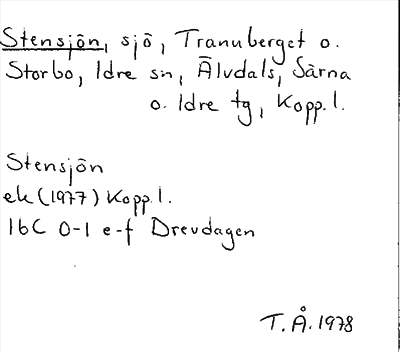 Stensjön, sjö, Tranuberget o.
Storbo, Idre sn, Älvdals, Särna
o. Idre tg, Kopp.l.
Stensjön
ek (1977) Kopp.l.
16C 0-1 e-f Drevdagen
T.Å. 1978